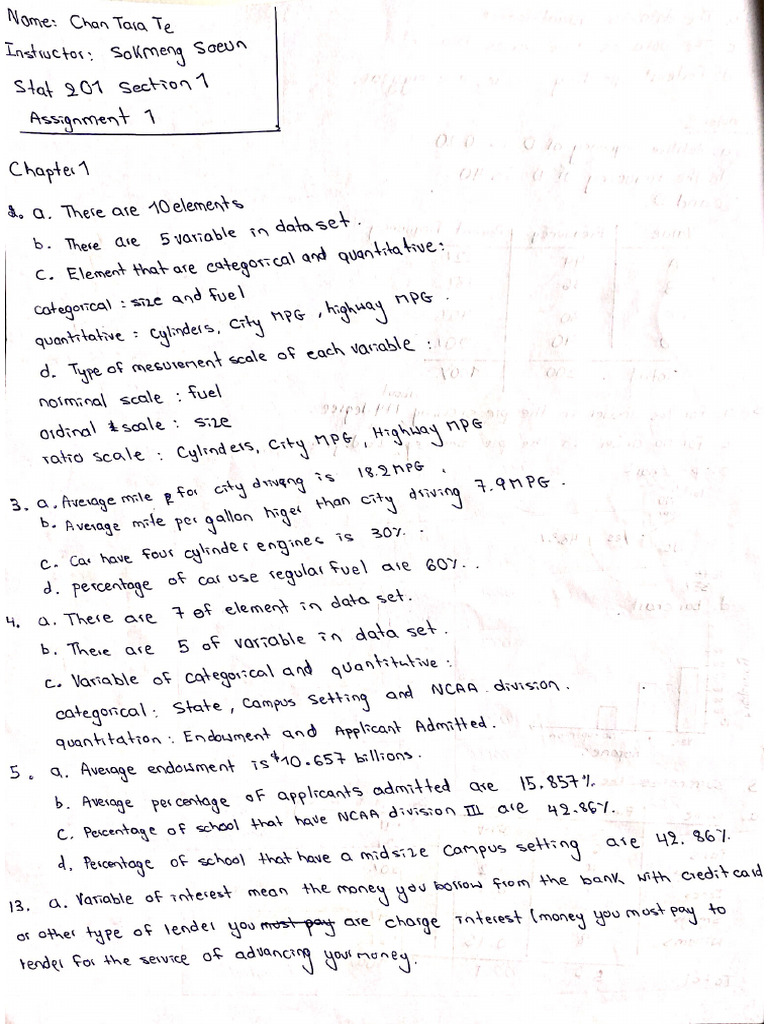 Name: Chan Tara Te
Instructor: Sokmeng Soeun
Stat 201 Section 1
Assignment 1
Chapter 1
2. a. There are 10 elements
b. There are 5 variable in data set.
c. Element that are categorical and quantitative:
categorical: size and fuel
quantitative: Cylinders, City MPG, highway MPG.
d. Type of mesurement scale of each variable:
norminal scale: fuel
ordinal scale: size
ratio scale: Cylinders, City MPG Highway MPG
3. a. Average mile for city driving is 18.2 MPG.
b. Average mile per gallon higer than city driving 7.9 MPG.
c. Car have four cylinder engines is 30%.
d. percentage of car use regular fuel are 60%..
4. a. There are 7 of element in data set.
b. There are 5 of variable in data set.
c. Variable of categorical and quantitutive:
categorical: State, Campus Setting and NCAA division.
quantitation: Endowment and Applicant Admitted.
5. a. Average endowment is $10.657 billions.
b. Average percentage of applicants admitted are 15.857%
c. Percentage of school that have NCAA division III are 42.86%.
d. Percentage of school that have a midsize Campus setting are 42.86%
13. a. Variable of interest mean the money you borrow from the bank with credit card
or other type of lender you must pay are charge interest (money you must pay to
lender for the service of advancing your money.